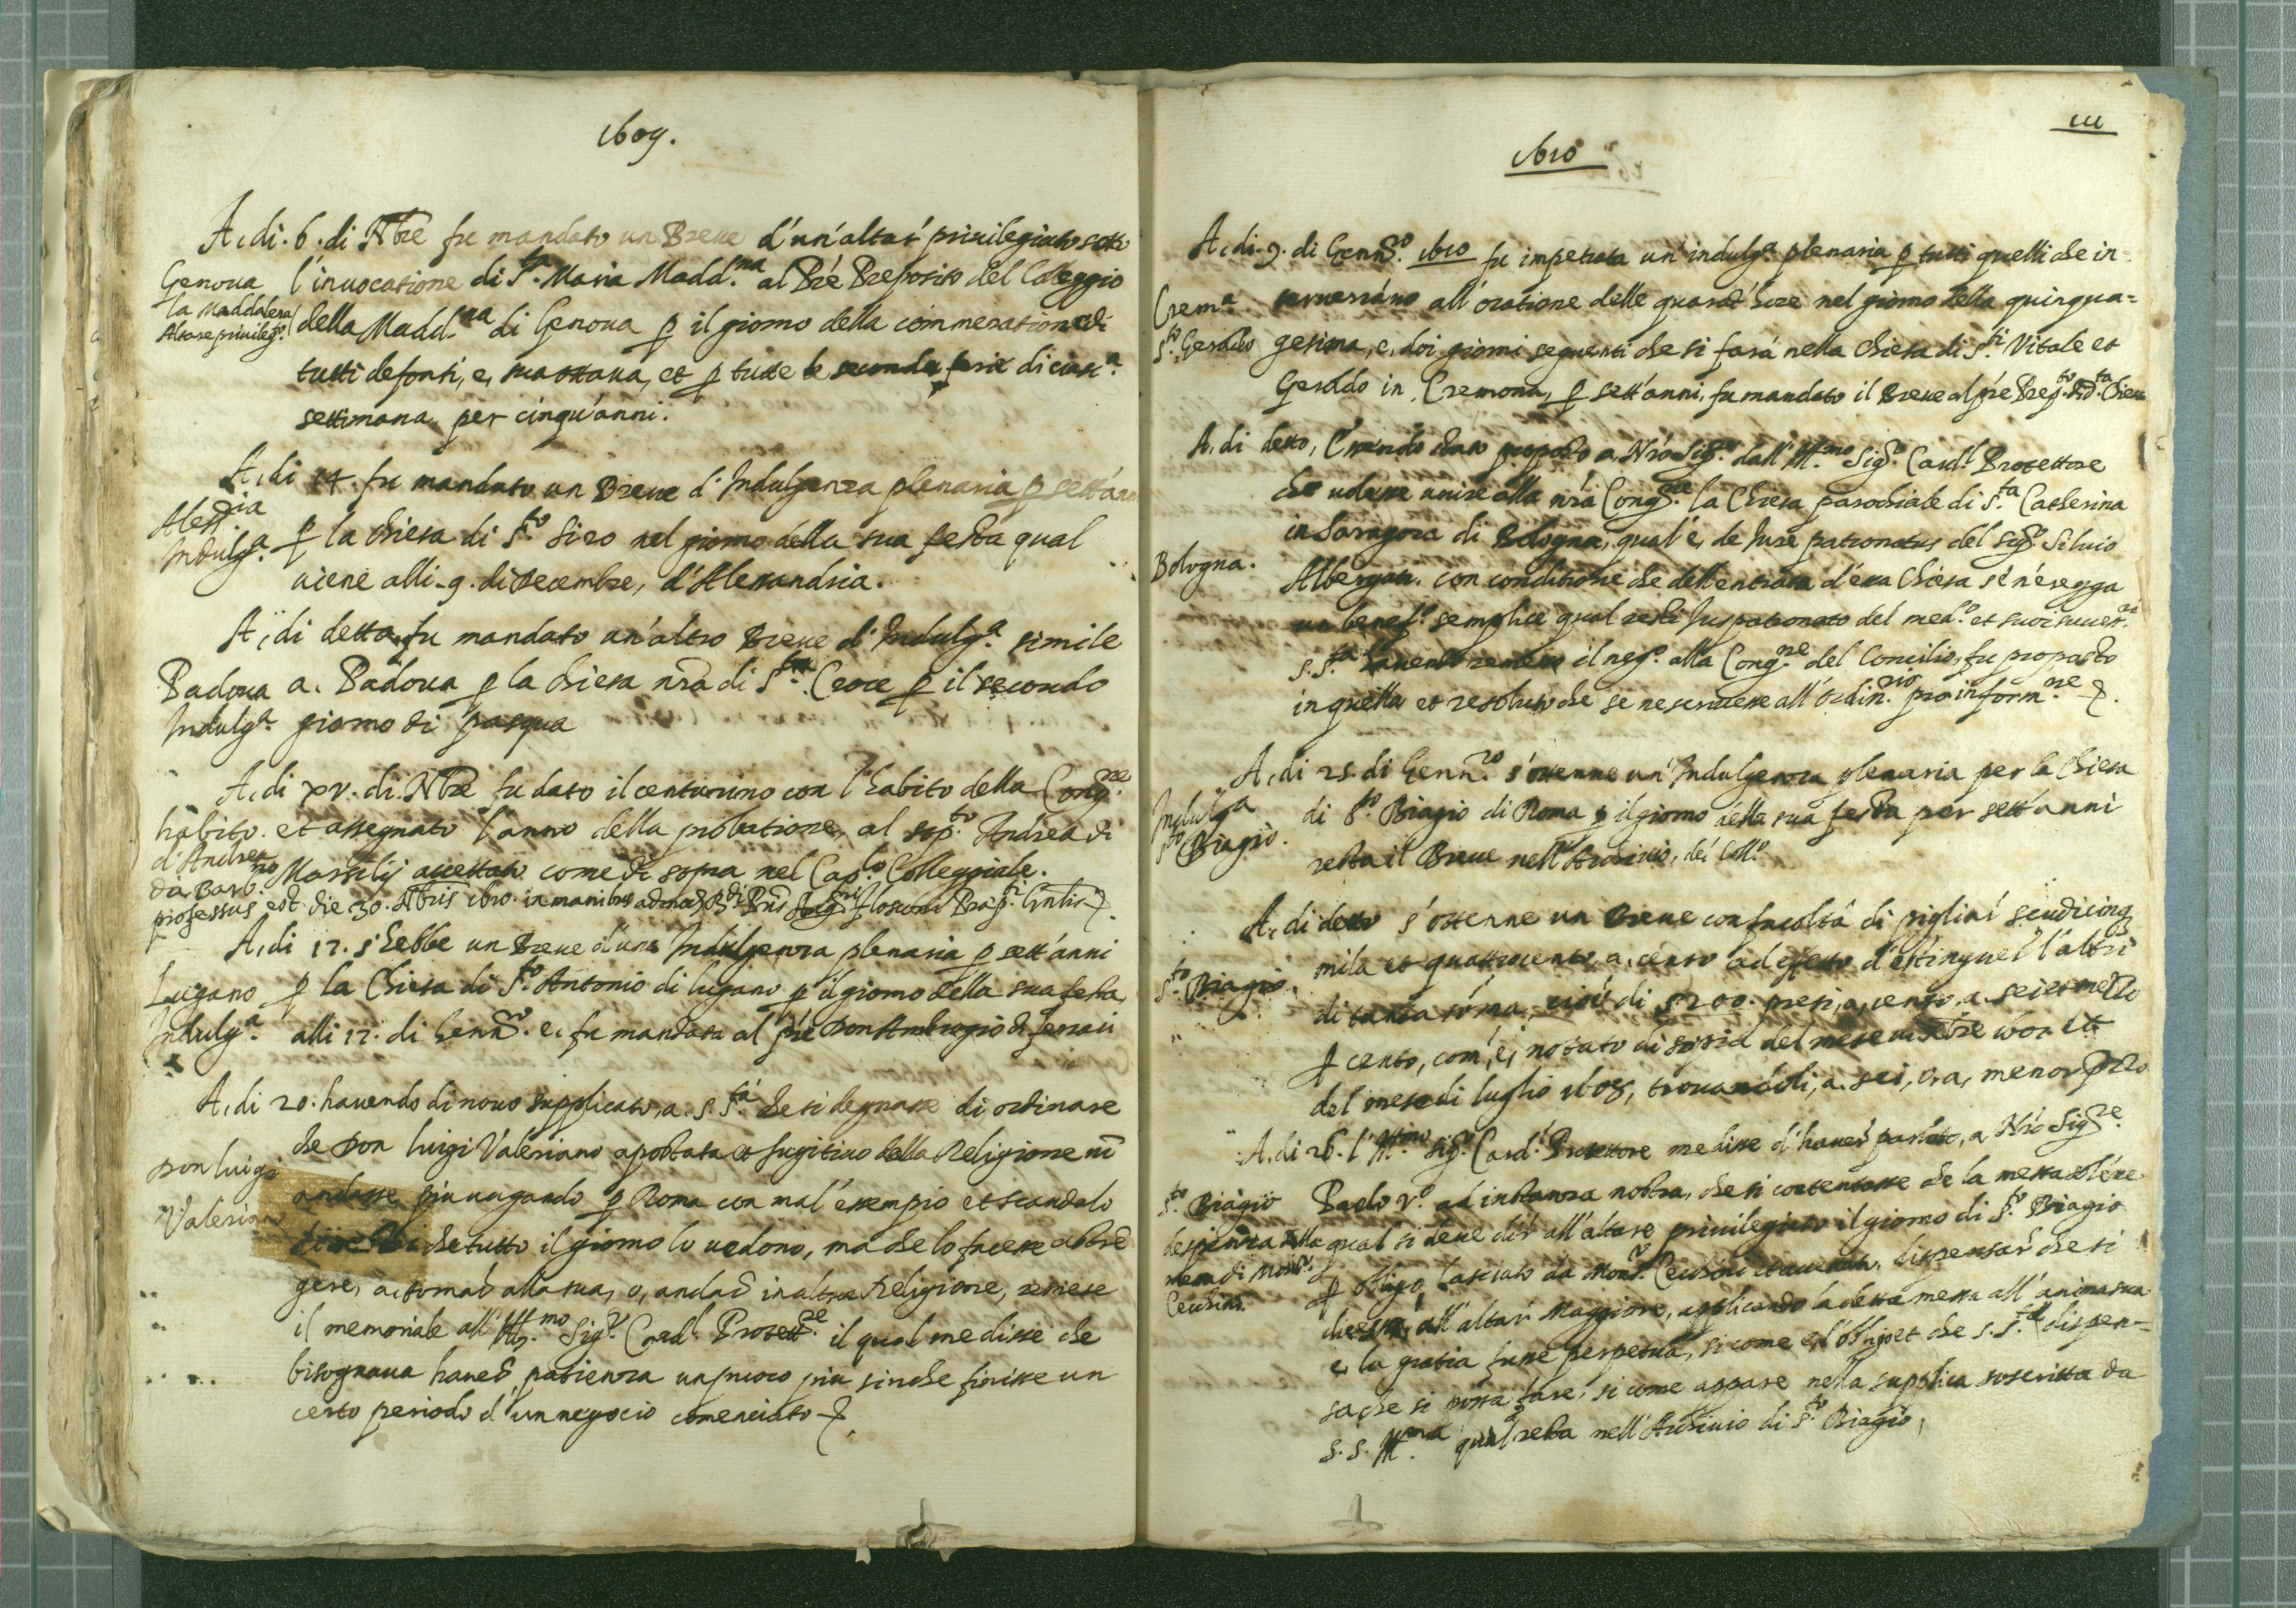 1609.
A, di. 6. di Nbre fu mandato un Breve d'un'altar privilegiato sotto
Genova l'invocatione di S.ta Maria Madd.na al Prè Preposito del Colleggio
la Maddalena
Altare privileg.o della Madd.na di Genova p il giorno della commeratione di
tutti defonti, e, sua ottava, et p tutte le seconde ferie di cias.a
settimana per cinqu'anni.
A, di 14. fu mandato un Breve d'Indulgenza plenaria p sett'anni
Aless.ia
Indulg.a p la Chiesa di S.to Siro nel giorno della sua festa qual
viene alli. 9. di Decembre, d'Alessandria.
A, di detta, fu mandato un'altro Breve d'Indulg.a simile
Padova a. Padova p la Chiesa nrã di S.ta Croce p il secondo
Indulg.a giorno di pasqua
A, di xv. di Nbre fu dato il centurino con l'habito della Cong.ne
hàbito. et assegnato l'anno della probatione, al sop.to Andrea di
d'Andrea
da Bar.no Marsilij accettato come di sopra nel Cap.lo Colleggiale.
professus est die 30. Nbris 1610. in manibus
A, di 17. s'hebbe un Breve d'una Indulgenza plenaria p sett'anni
Lugano p la Chiesa di S.to Antonio di lugano p il giorno della sua festa,
Indulg.a alli 17. di Genn.ro e, fu mandata al prè Don Ambrogio
A, di 20. havendo di novo supplicato, a. S. S.tà che si degnasse di ordinare
che Don luigi Valeriano apostata et fugitivo della Religione nõ
Don luigi
Valeriano andasse piu vagando p Roma con mal'essempio et scandalo
che tutto il giorno lo vedono, ma che lo facesse astre
gere, a, tornar alla sua, o, andar in altra Religione, remese
il memoriale all'Ill.mo Sig.r Card.l Protett.re il qual me disse che
bisognava haver patienza un puoco piu sinche finisse un
certo periodo d'un negocio comenciato &.
111
1610
A, di. 9. di Genn.ro 1610 fu impetrata un'indulg.a plenaria p tutti quelli che in-
Crem.a terverrãno all'oratione delle quarãt'hore nel giorno della quinqua=
S.to Geroldo gesima, e, doi giorni seguenti che si farà nella Chiesa di S.ti Vitale et
Geroldo in Cremona, p sett'anni, fu mandato il Breve al prè Prep.to di d.ta Chiesa
A, di detto, Essendo stato proposto a, Nrõ Sig.re dall'Ill.mo Sig.r Card.l Protettore
che volesse unire alla nrã Cong.ne la Chiesa parochiale di S.ta Catherina
in Saragoza di Bologna, qual'è, de Jure patronatus del Sig.r Silvio
Bologna. Albergati. con conditione che dell'entrata d'essa Chiesa se n'eregga
un benef.o semplice qual resti Juspatronato del med.o et suoi succes.ri
S. S.tà havendo remesso il neg.o alla Cong.ne del Concilio, fu proposto
in quella et resoluto che se ne scrivesse all'Ordin.rio pro inform.ne &.
A, di 25. di Genn.ro s'ottenne un'Indulgenza plenaria per la Chiesa
Indulg.a
S.to Biagio. di S.to Biagio di Roma p il giorno della sua festa per sett'anni
resta il Breve nell'Archivio, del Coll.o
A, di detto s'ottenne un Breve con facoltà di pigliar scudi cinq
S.to Biagio. mila et quattrocento, a, censo ad effetto d'estinguer l'altri
di tanta sõma, cioè di 5200. presi, a, censo, a sei et mezzo
p cento, com'è, notato di sopra del mese di 7bre 1607 et
del mese di luglio 1608, trovandoli, a. sei, o, a, menor prezzo
A, di 26. l'Ill.mo Sig.r Card.l Protettore me disse d'haver parlato, a Nrõ Sig.re
S.to Biagio Paolo V.o ad instanza nostra, che si contentasse che la messa
despenza della qual si deve dir all'altare privilegiato il giorno di S.to Biagio
messa di Mons.r
Cecchini. p obligo lasciato da Mons.r Cecchini dispensar che si
dicesse, all'altar Maggiore, applicando la detta messa all'anima sua
e, la gratia fusse perpetua, si come e, l'obligo et che S. S.tà dispen-
sa che si possa fare, si come appare nella supplica soscritta da
S. S. Ill.ma qual resta nell'Archivio di S.to Biagio,